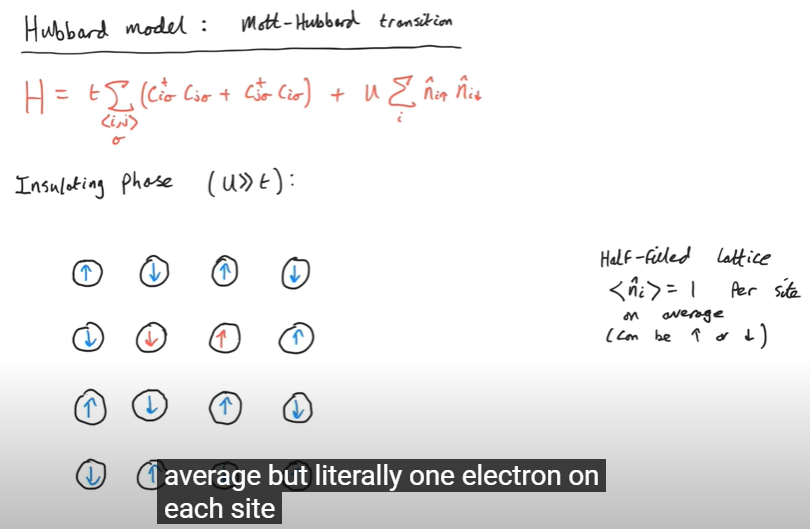 Hubbard model : Mott-Hubbard transition
H = t Σ (c†iσ cjσ + c†jσ ciσ) + U Σ n̂i↑ n̂i↓
<i,j> i
σ
Insulating Phase (U≫t):
↑ ↓ ↑ ↓
Half-filled lattice
<n̂i> = 1 per site
on average
(can be ↑ or ↓)
↓ ↓ ↑ ↑
↑ ↓ ↑ ↓
↓ ↑
average but literally one electron on
each site